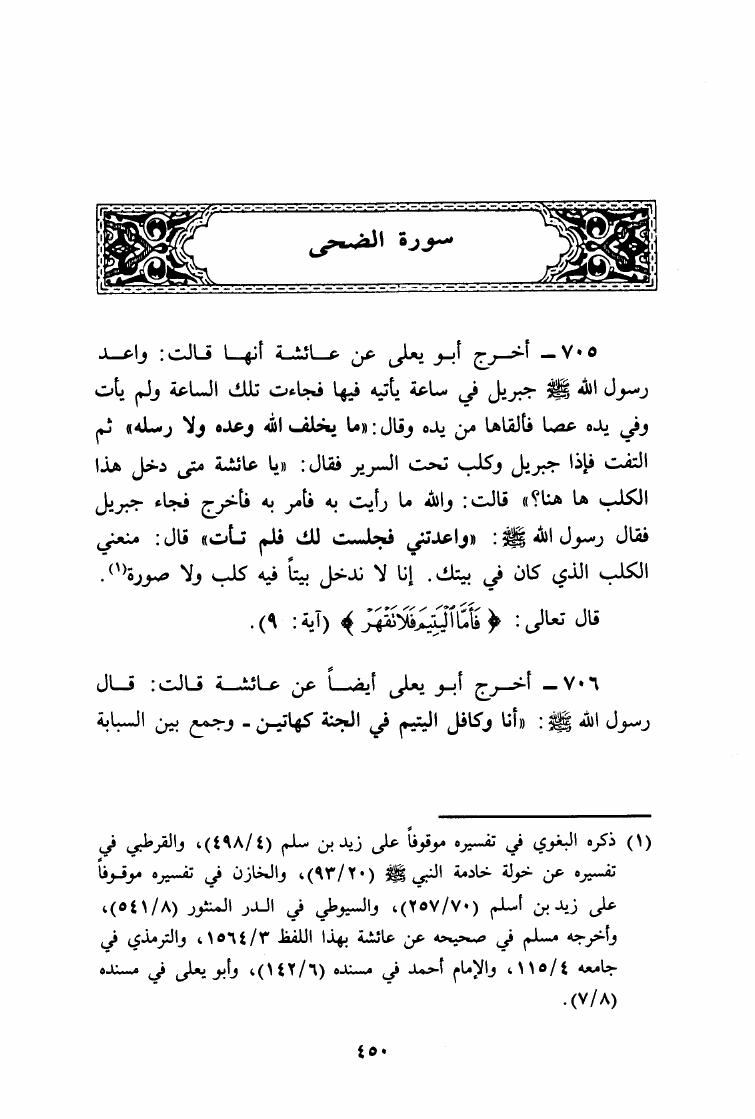 سورة الضحى
٧٠٥ ـ أخـــرج أبـو يعلى عن عـــائشـة أنهـا قـالت: واعـد
رسول الله ﷺ جبريل في ساعة يأتيه فيها فجاءت تلك الساعة ولم يأت
وفي يده عصا فألقاها من يده وقال: «ما يخلف الله وعده ولا رسله» ثم
التفت فإذا جبريل وكلب تحت السرير فقال: «يا عائشة متى دخل هذا
الكلب ها هنا؟» قالت: والله ما رأيت به فأمر به فأخرج فجاء جبريل
فقال رسول الله ﷺ: «واعدتني فجلست لك فلم تـأت» قال: منعني
الكلب الذي كان في بيتك. إنا لا ندخل بيتاً فيه كلب ولا صورة(١).
قال تعالى: ﴿ فَأَمَّا ٱلْيَتِيمَ فَلَا تَقْهَرْ ﴾ (آية: ٩).
٧٠٦ ـ أخـــرج أبـو يعلى أيضـــاً عن عـائشـــة قـالت: قـــال
رسول الله ﷺ: «أنا وكافل اليتيم في الجنة كهاتيـن ـ وجمع بين السبابة
(١) ذكره البغوي في تفسيره موقوفاً على زيد بن سلم (٤٩٨/٤)، والقرطبي في
تفسيره عن خولة خادمة النبي ﷺ (٩٣/٢٠)، والخازن في تفسيره موقـوفاً
على زيد بن أسلم (٢٥٧/٧٠)، والسيوطي في الـدر المنثور (٥٤١/٨)،
وأخرجه مسلم في صحيحه عن عائشة بهذا اللفظ ١٥٦٤/٣، والترمذي في
جامعه ١١٥/٤، والإمام أحمد في مسنده (١٤٢/٦)، وأبو يعلى في مسنده
(٧/٨).
٤٥٠